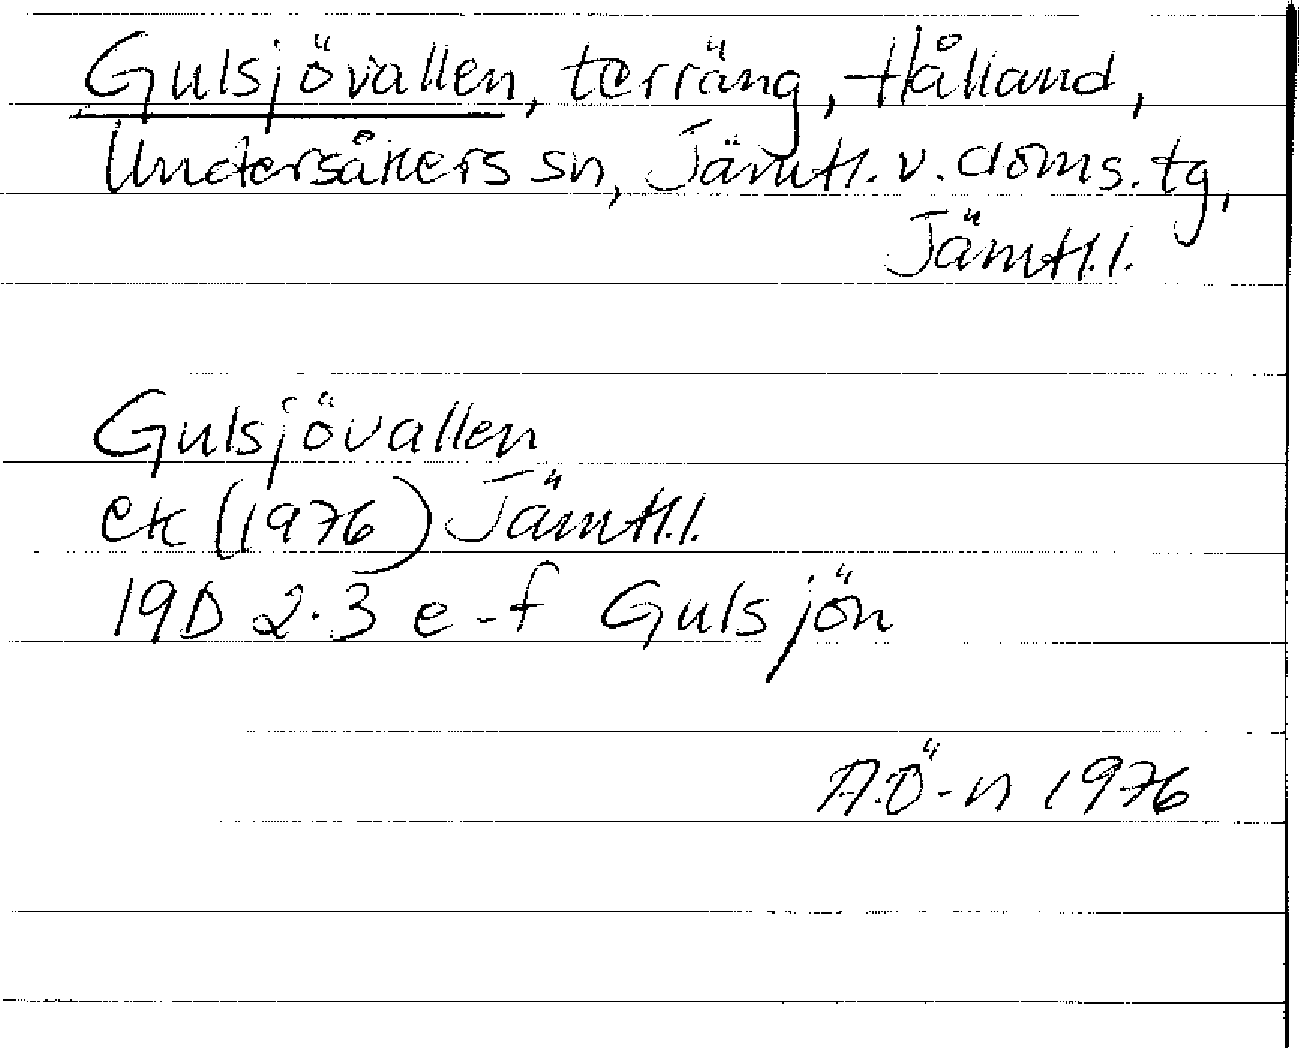 Gulsjövallen, terräng, Hålland,
Undersåkers sn, Jämtl. v. doms. tg,
Jämtl.l.
Gulsjövallen
ek (1976) Jämtl.l.
19D 2.3 e-f Gulsjön
A.Ö-n 1976